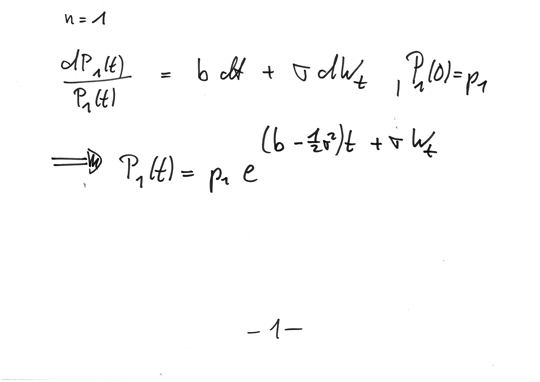 n = 1
dP₁(t)/P₁(t) = b dt + σ dW_t , P₁(0) = p₁
⟹ P₁(t) = p₁ e^{(b - ½σ²)t + σW_t}
- 1 -